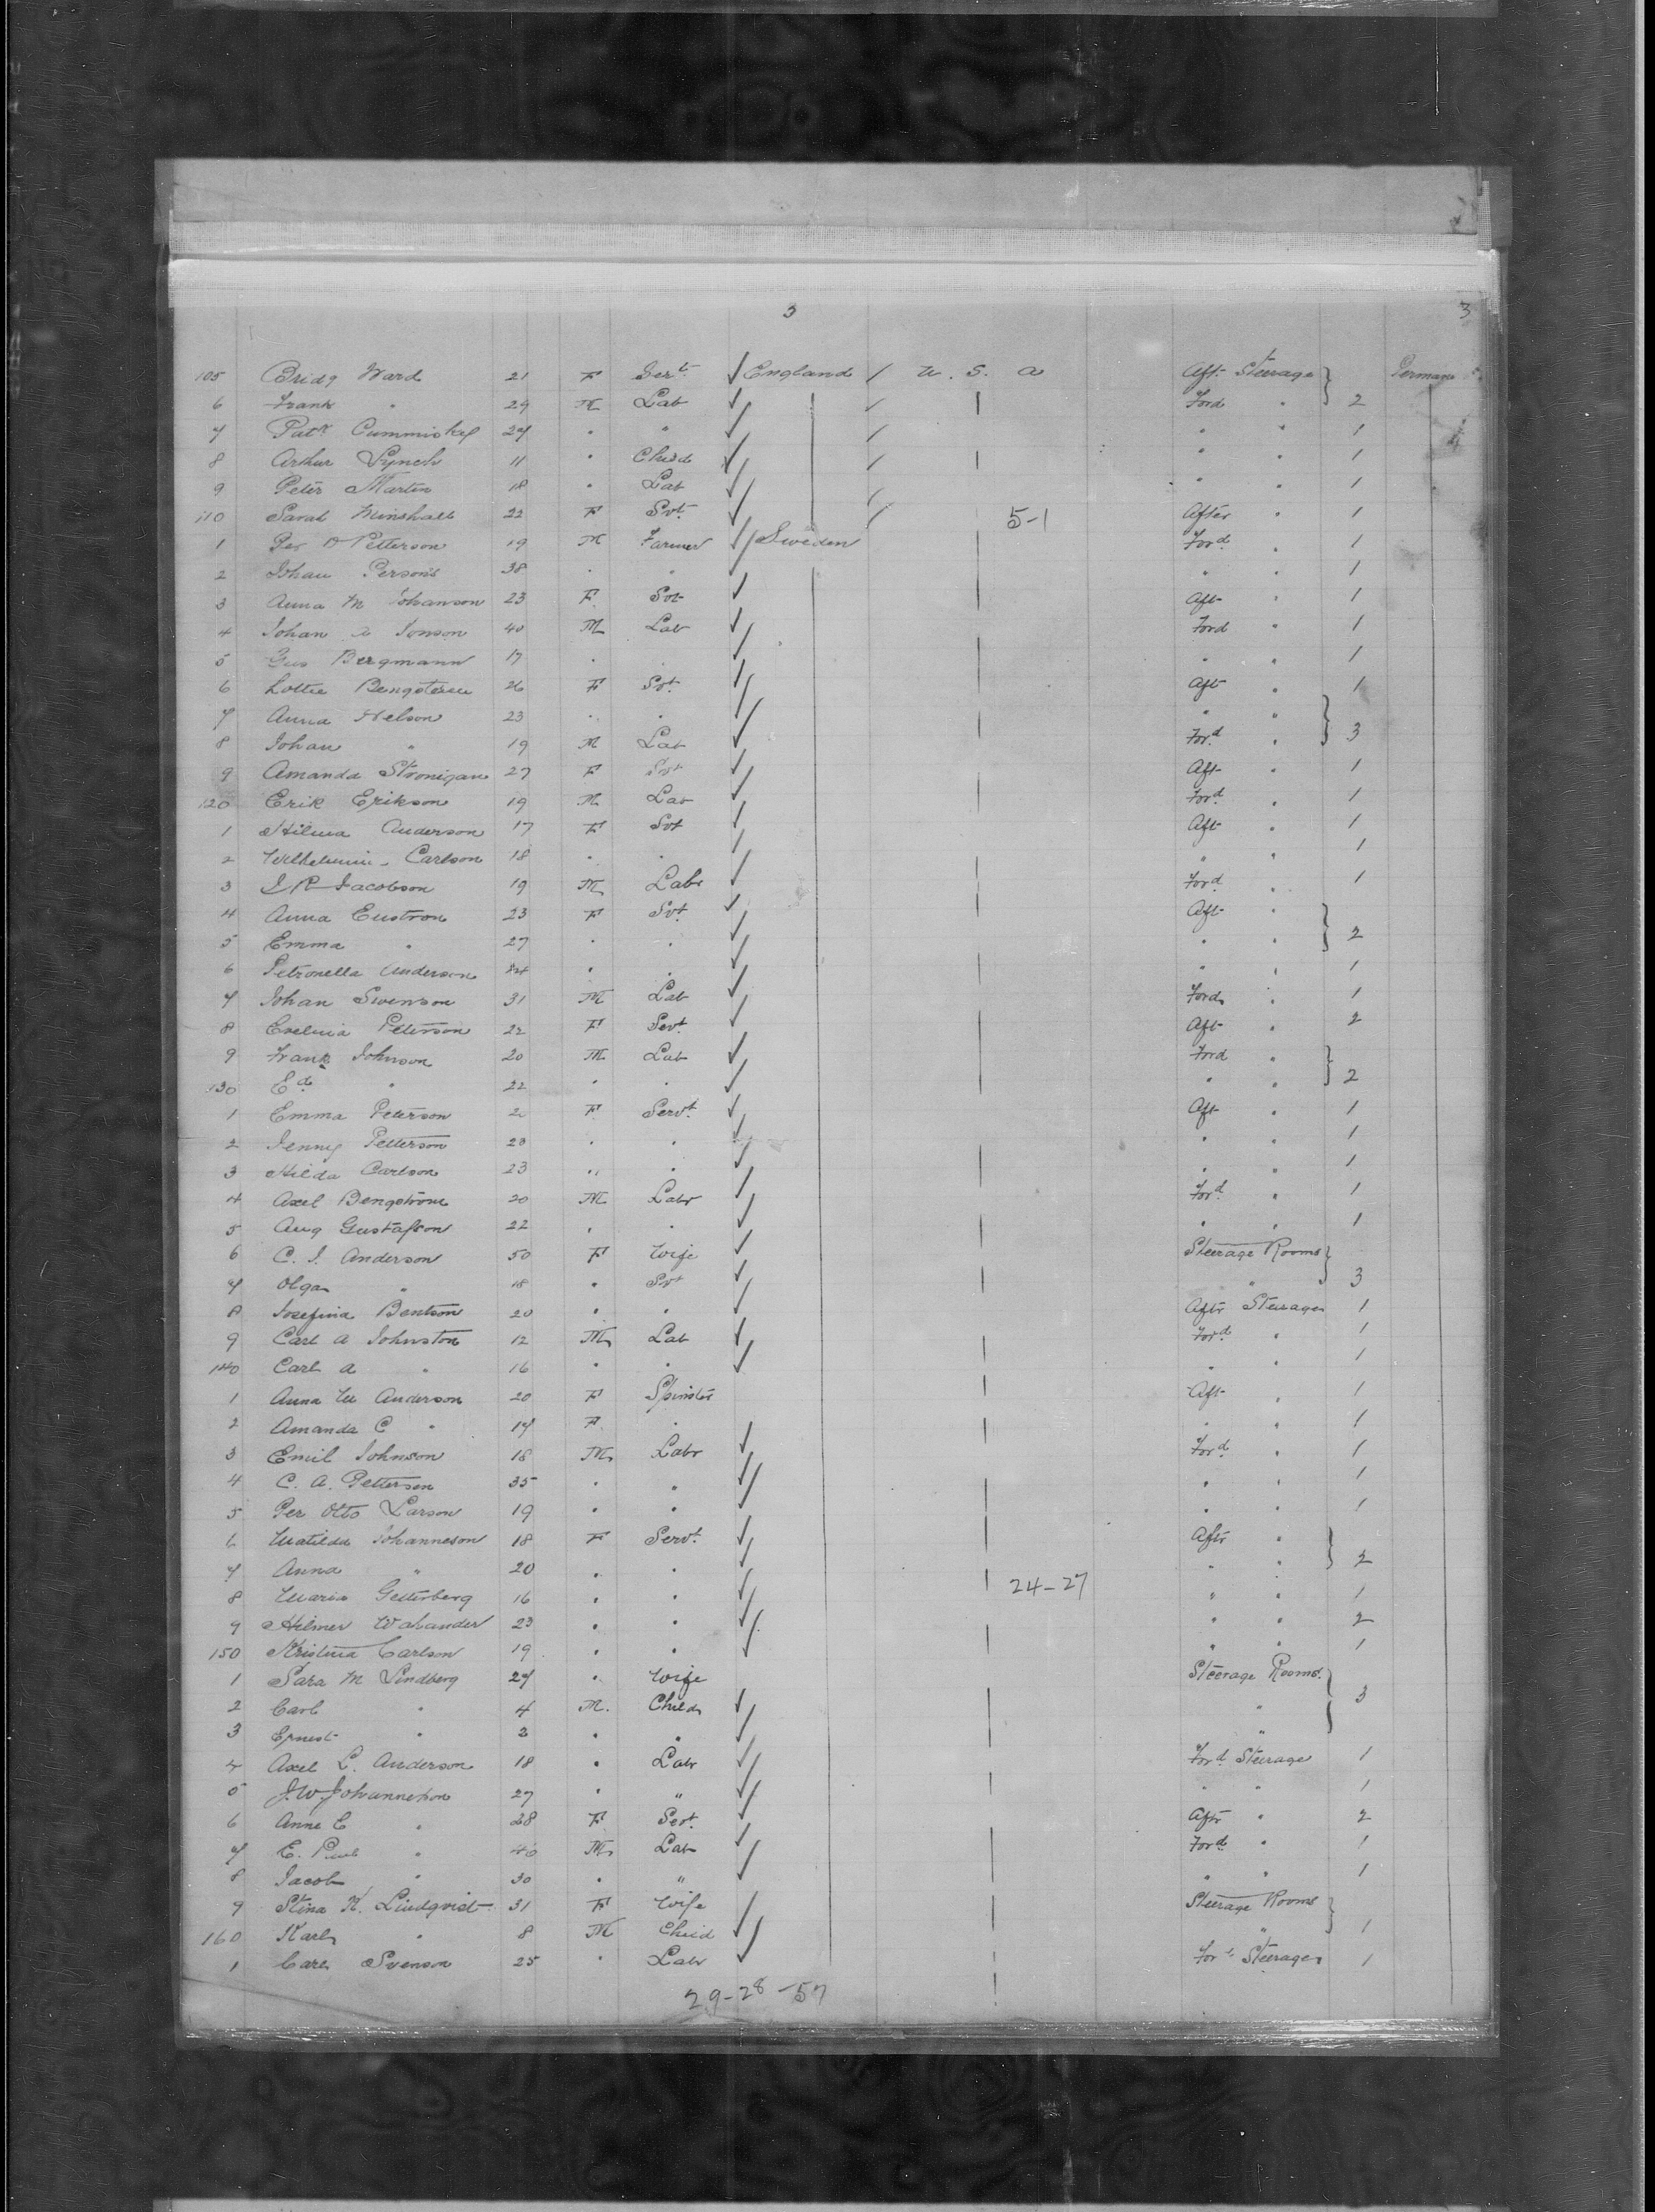 3 3
105 Bridg Ward 21 F Sert. England U. S. a Aft. Steerage Perman
6 Frank " 29 M Lab Ford " 2
7 Patk Cummiskey 27 " " " " 1
8 Arthur Lynch 11 " Child " " 1
9 Peter Martin 18 " Lab " " 1
110 Sarah Minshall 22 F Svt. 5-1 After " 1
1 Per Petterson 19 M Farmer Sweden Ford " 1
2 Johan Persons 38 " " " " 1
3 Anna M Johanson 23 F. Svt Aft " 1
4 Johan a Jonson 40 M Lab Ford " 1
5 Gus Bergmann 17 " " " " 1
6 Lottie 26 F Svt. Aft " 1
7 Anna Nelson 23 " " " "
8 Johan " 19 M Lab Ford " 3
9 Amanda Stronigan 27 F Svt Aft " 1
120 Erik Erikson 19 M Lab Ford " 1
1 Hilma Anderson 17 F Svt Aft " 1
2 Carlson 18 " " " " 1
3 Jacobson 19 M Labr Ford " 1
4 Anna Enstrom 23 F Svt. Aft "
5 Emma " 27 " " " " 2
6 Petronella Anderson " " " " 1
7 Johan Swenson 31 M Lab Ford " 1
8 Peterson 22 F Sevt. Aft " 2
9 Frank Johnson 20 M Lab Ford "
130 Ed " 22 " " " " 2
1 Emma Peterson F Servt. Aft " 1
2 Jenny Petterson 23 " " " " 1
3 Hilda Carlson 23 " " " " 1
4 Axel Bengstrom 20 M Labr Ford " 1
5 Aug Gustafson 22 " " " " 1
6 C. J. Anderson 50 F Wife Steerage Rooms
7 Olga " 18 " Svt " 3
8 Josefina Bentson 20 " " Aftr Steerage 1
9 Carl a Johnston 12 M Lab Ford " 1
140 Carl a " 16 " " " " 1
1 Anna M Anderson 20 F Spinster Aft " 1
2 Amanda C " 17 F " " " 1
3 Emil Johnson 18 M Labr Ford " 1
4 C. A. Petterson 35 " " " " 1
5 Per Otto Larson 19 " " " " 1
6 Matilda Johanneson 18 F Servt. Aftr "
7 Anna " 20 " " " " 2
8 Maria Getterberg 16 " " 24-27 " " 1
9 Hilmer Walander 23 " " " " 2
150 Kristina Carlson 19 " " " " 1
1 Sara M Lindberg 27 " Wife Steerage Rooms
2 Carl " 4 M. Child " 3
3 Ernest " 2 " " "
4 Axel L. Anderson 18 " Labr Ford Steerage 1
5 J. W. Johanneson 27 " " " " 1
6 Anne C " 28 F Sevt. Aftr " 2
7 E. " 40 M Lab Ford " 1
8 Jacob " 30 " " " " 1
9 Stina K. Lindqvist 31 F Wife Steerage Rooms
160 Karl " 8 M Child " 1
1 Carl Svenson 25 " Labr Ford Steerage 1
29-28-57